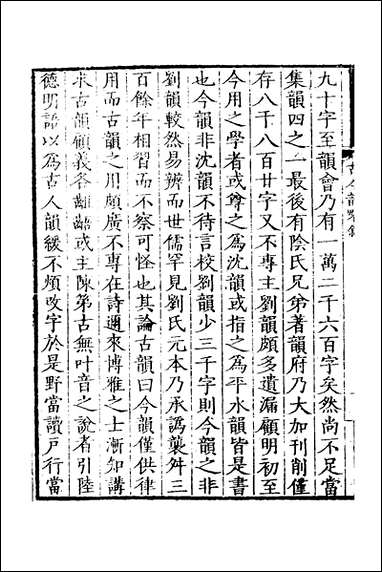 九十字至韻會乃有一萬二千六百字矣然尚不足當
集韻四之一最後有陰氏兄弟著韻府乃大加刊削僅
存八千八百廿字又不專主劉韻頗多遺漏顧明初至
今用之學者或尊之爲沈韻或指之爲平水韻皆是書
也今韻非沈韻不待言校劉韻少三千字則今韻之非
劉韻較然易辨而世儒罕見劉氏元本乃承譌襲舛三
百餘年相習而不察可怪也其論古韻曰今韻僅供律
用而古韻之用頗廣不專在詩邇來博雅之士漸知講
求古韻顧義各齟齬或主陳第古無叶音之說者引陸
德明語以爲古人韻緩不煩改字於是野當讀戶行當